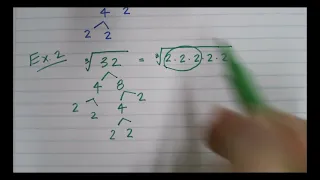 4 2
2 2
Ex.2 ∛32 = ∛2·2·2·2·2
4 8
2 2 4 2
2 2